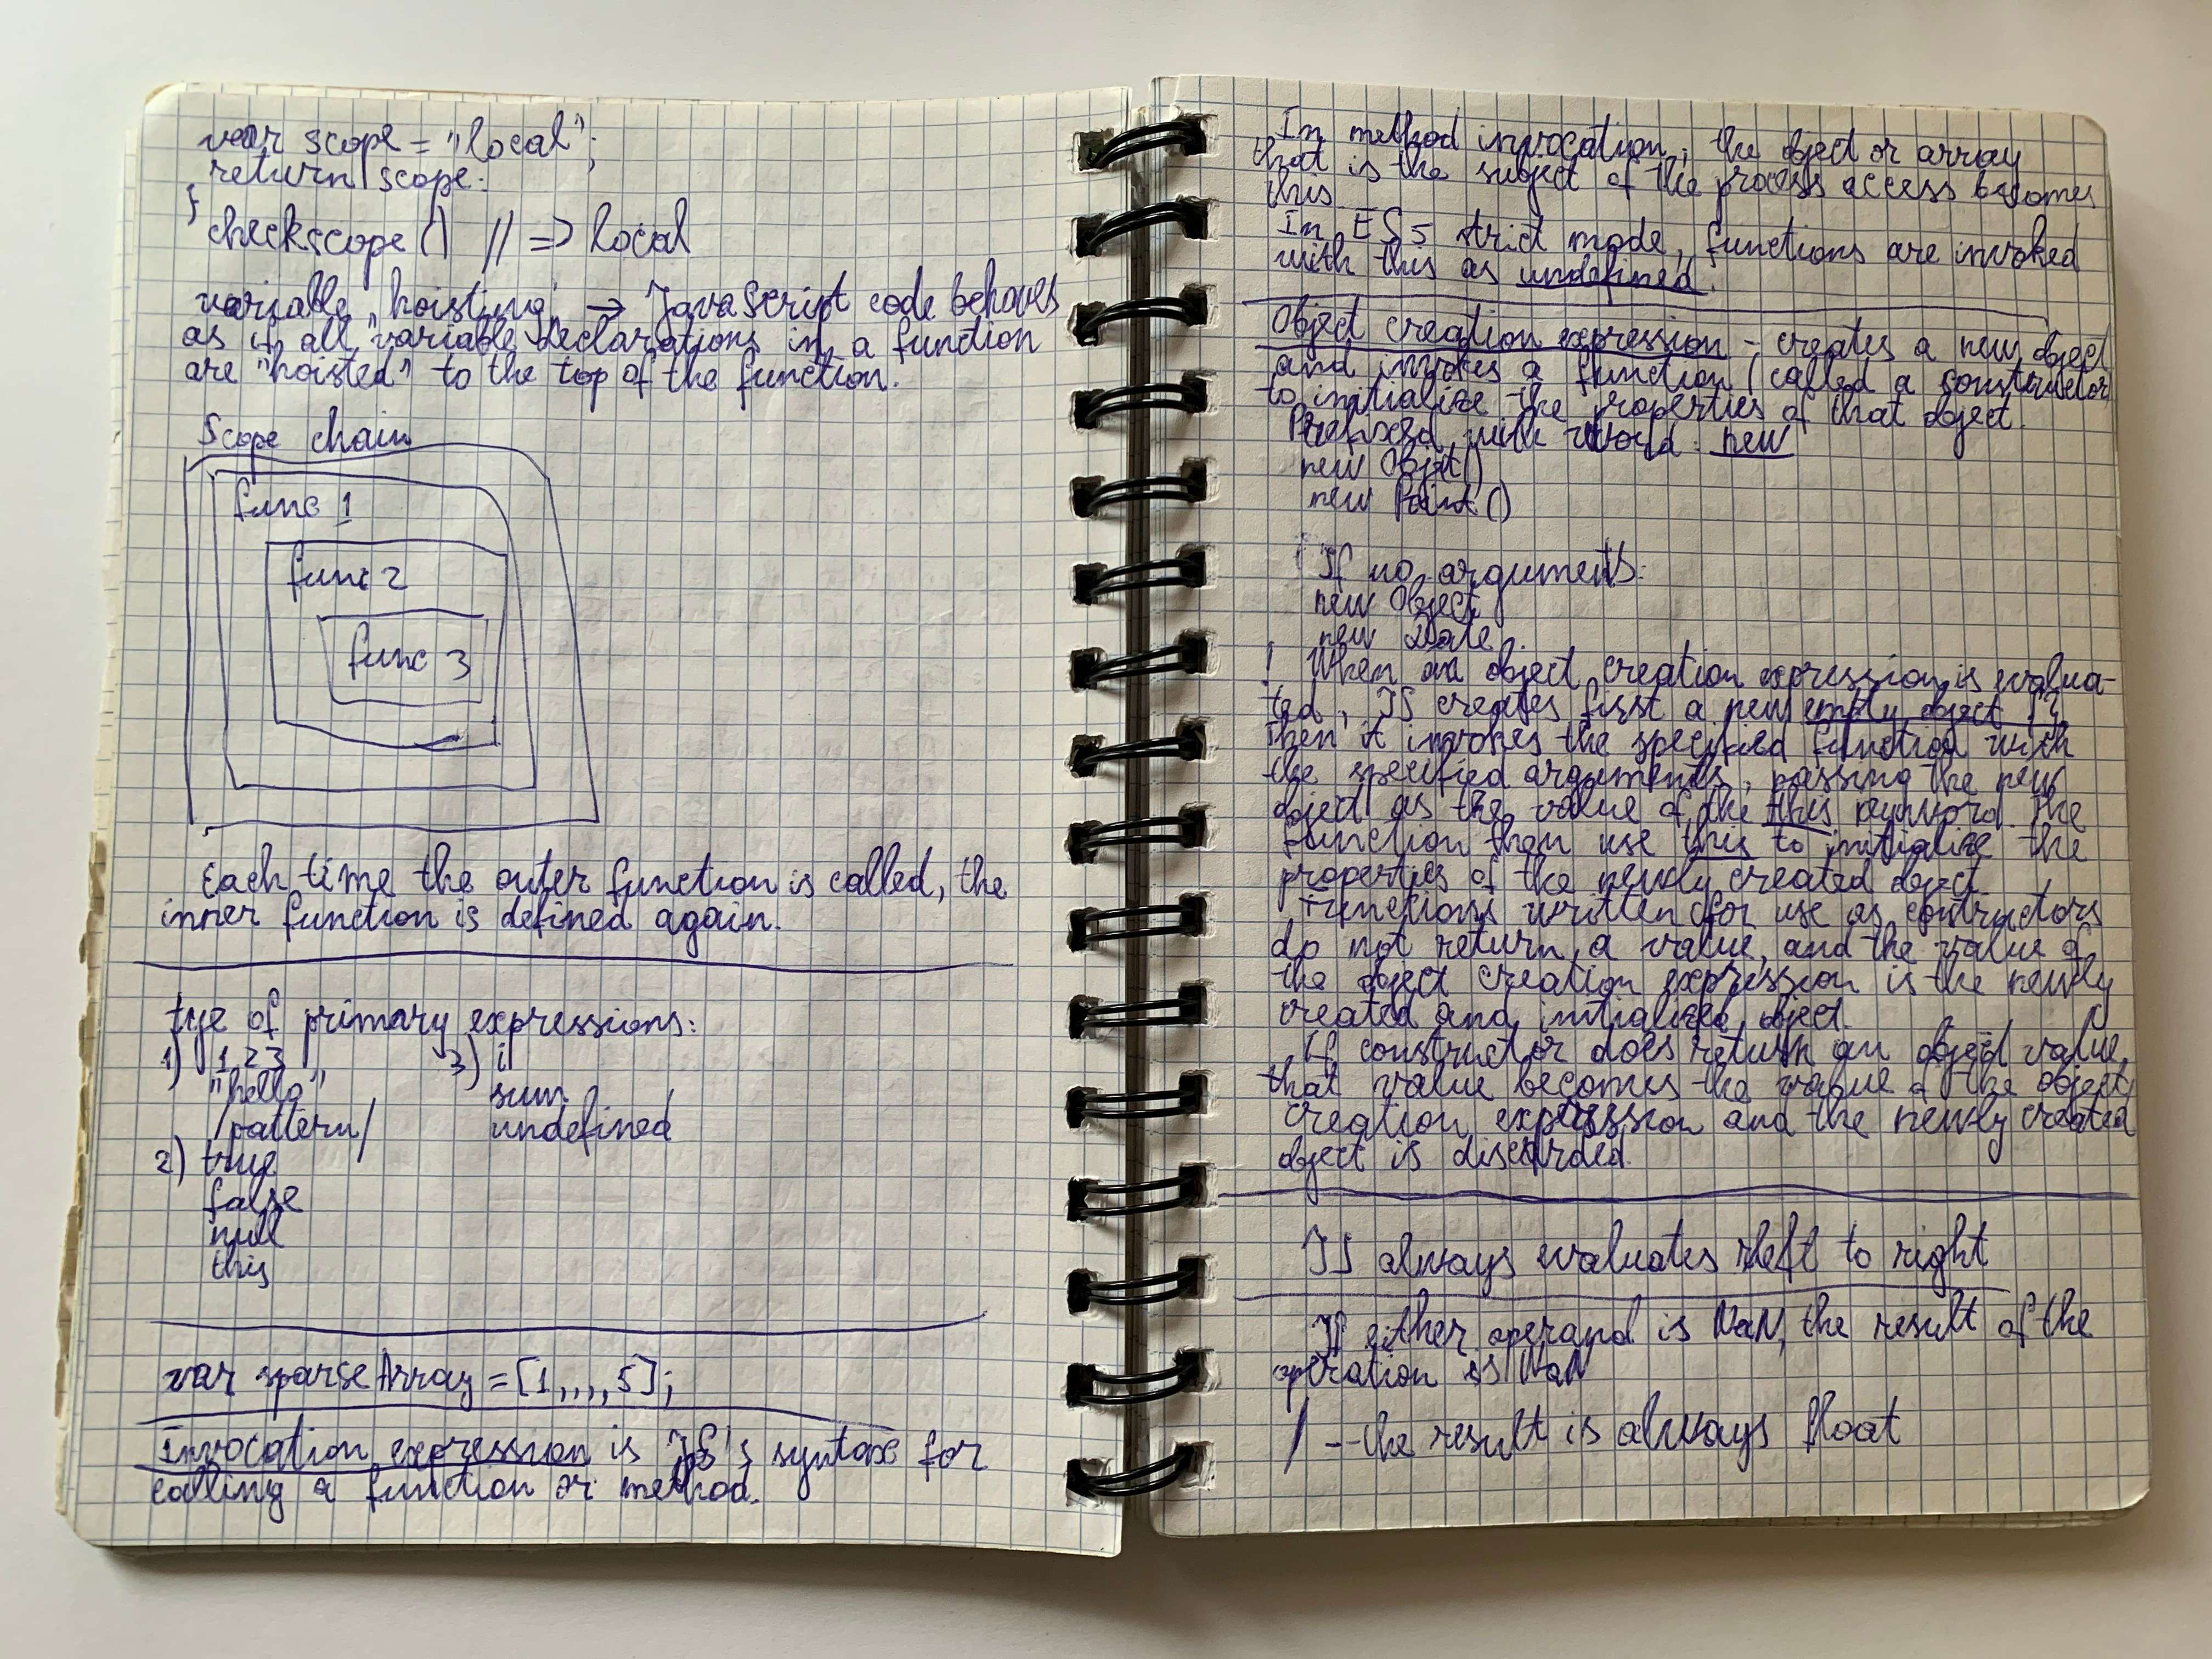 var scope = "local";
return scope.
}
checkscope() // => local
variable "hoisting" → JavaScript code behaves
as if all variable declarations in a function
are "hoisted" to the top of the function.
Scope chain
func 1
func 2
func 3
Each time the outer function is called, the
inner function is defined again.
tye of primary expressions:
1) 1.23
"hello"
/pattern/
2) true
false
null
this
3) i
sum
undefined
var sparseArray = [1,,,,5];
Invocation expression is JS's syntax for
calling a function or method.
In method invocation, the object or array
that is the subject of the process access becomes
this
In ES5 strict mode, functions are invoked
with this as undefined.
Object creation expression - creates a new object
and invokes a function (called a constructor
to initialize the properties of that object.
Prefixed with word: new
new Object()
new Point()
If no arguments:
new Object
new Date
! When an object creation expression is evalua-
ted, JS creates first a new empty object {}
then it invokes the specified function with
the specified arguments, passing the new
object as the value of the this keyword. The
function then use this to initialize the
properties of the newly created object.
Functions written for use as contructors
do not return a value, and the value of
the object creation expression is the newly
created and initialized object.
If constructor does return an object value,
that value becomes the value of the object
creation expression and the newly created
object is discarded.
JS always evaluates left to right
If either operand is NaN, the result of the
operation is NaN
/ -- the result is always float